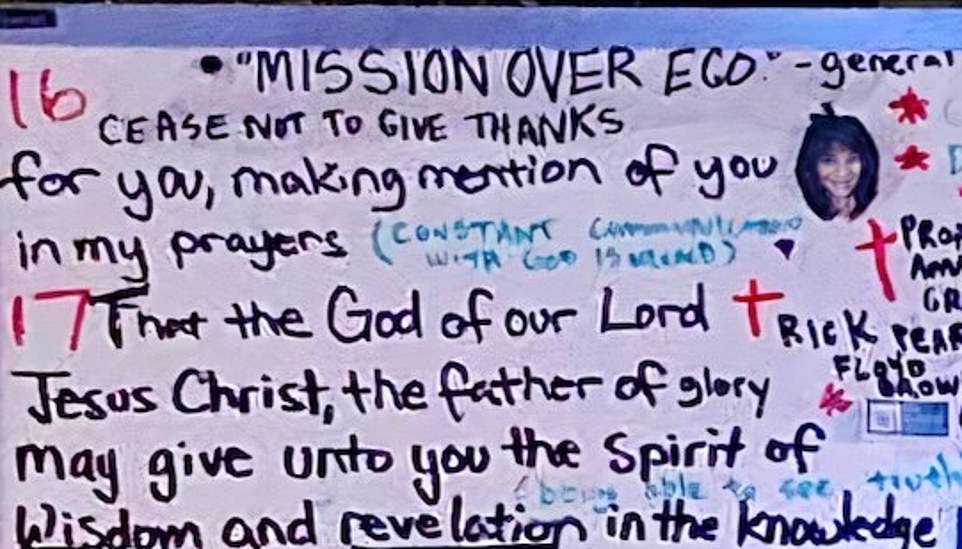 • "MISSION OVER EGO." - general
16 CEASE NOT TO GIVE THANKS
for you, making mention of you
in my prayers (CONSTANT COMMUNICATION
WITH GOD IS
17 That the God of our Lord
RICK
FLOYD
Jesus Christ, the father of glory
may give unto you the Spirit of
(being able to see truth
Wisdom and revelation in the knowledge